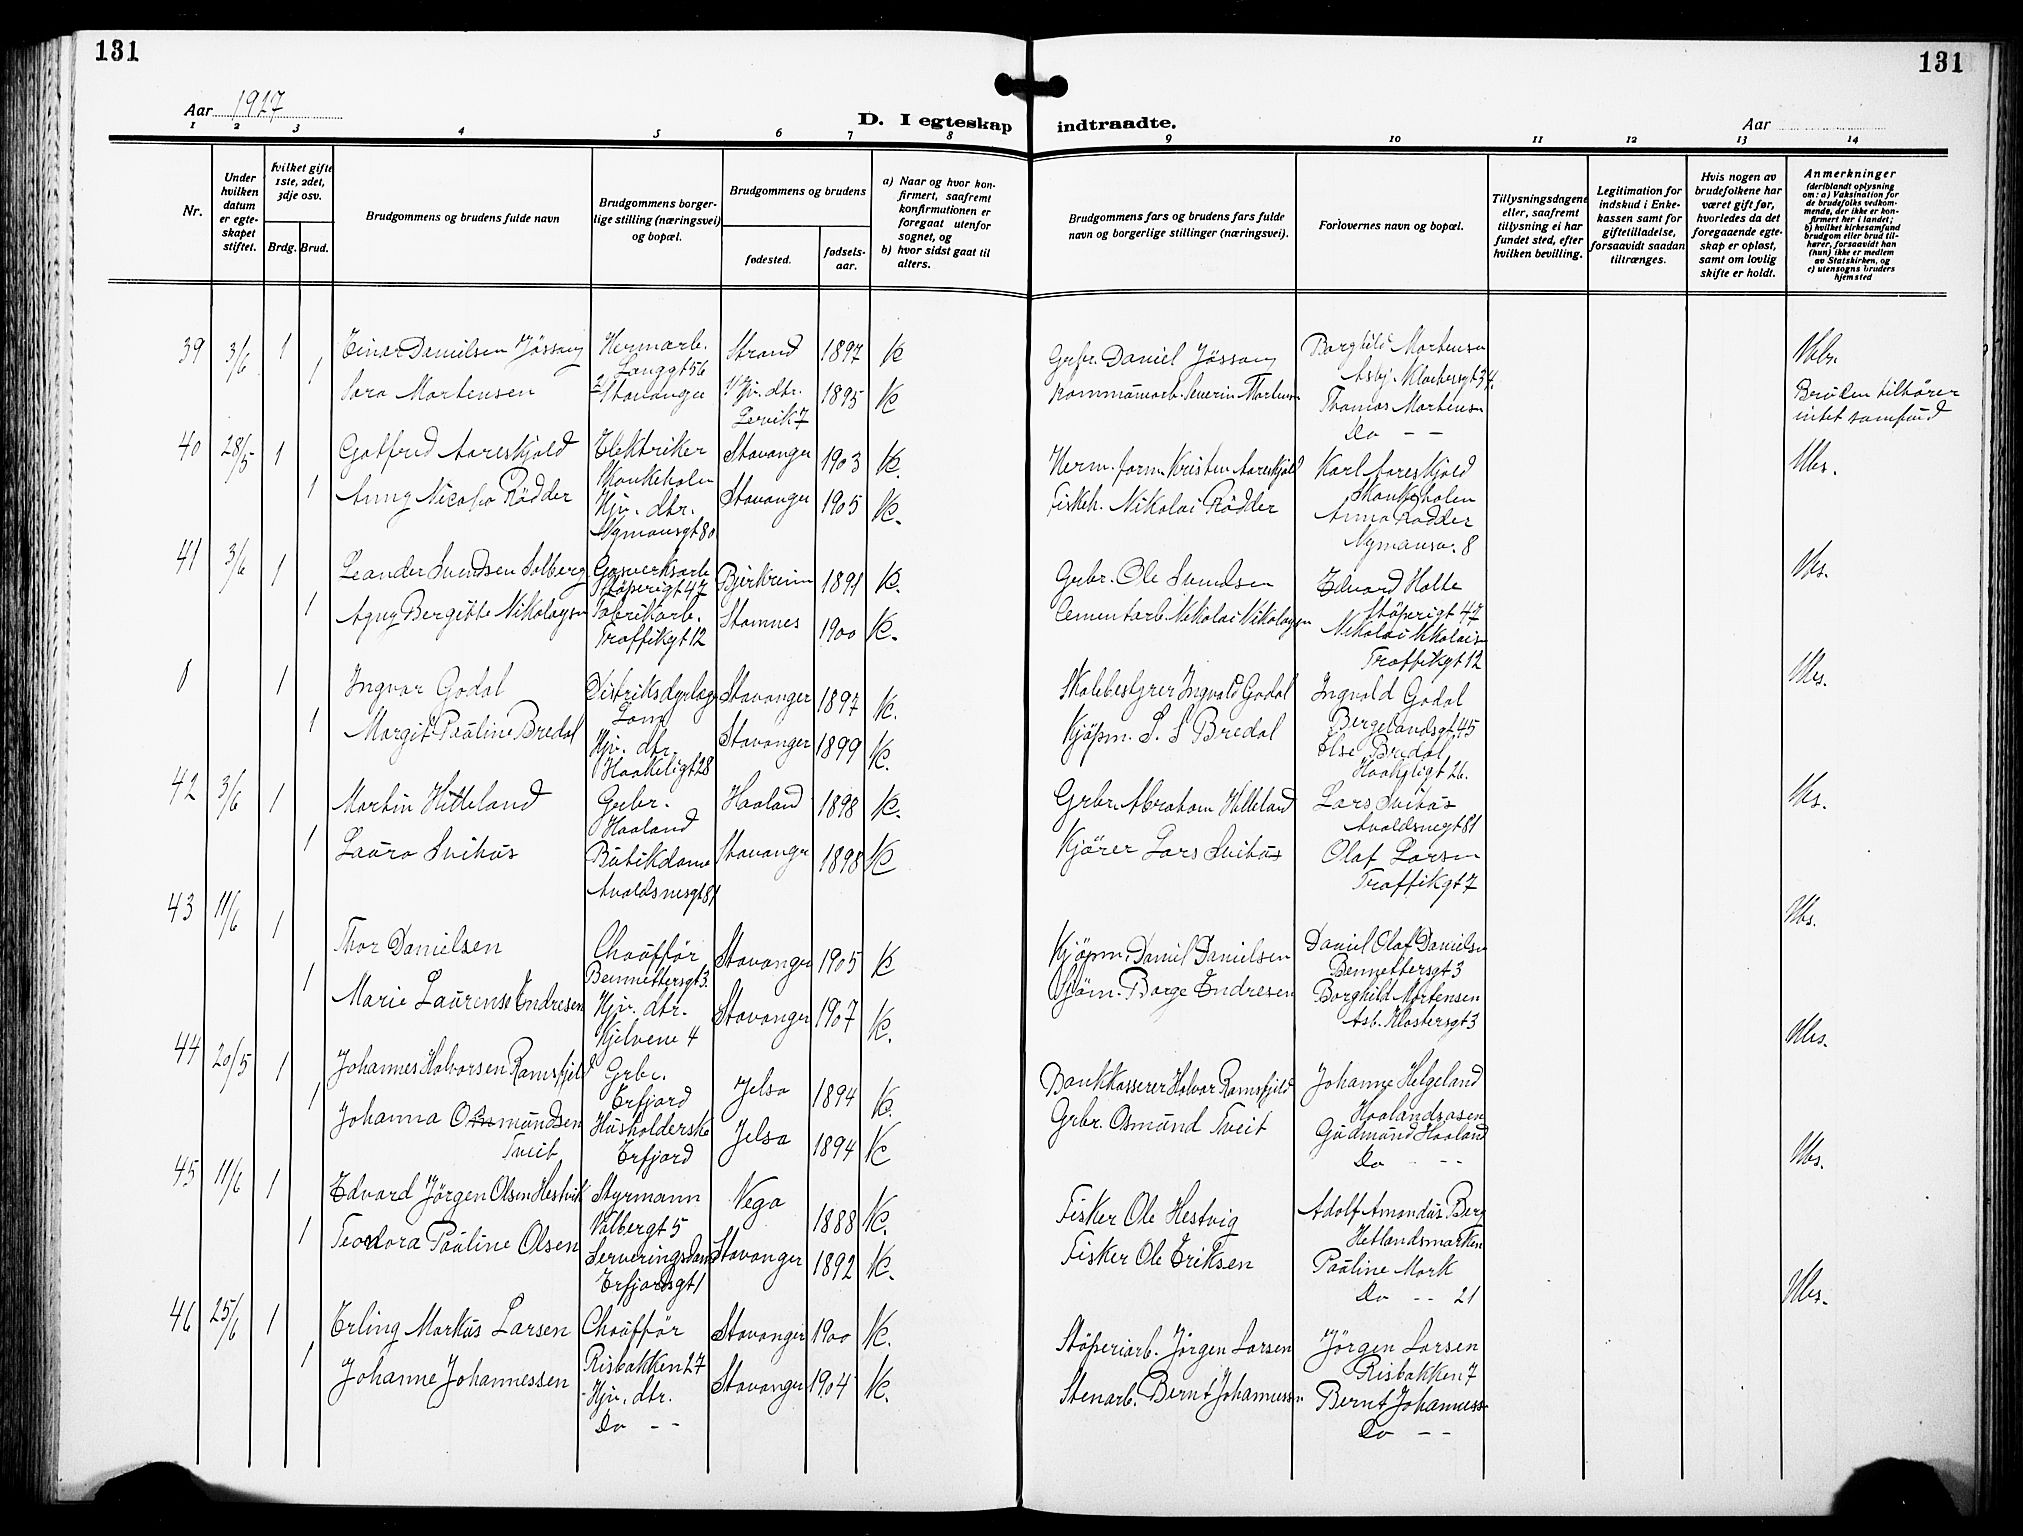 131
131
Aar 1927
D. I egteskap indtraadte.
Aar
1 2 3 4 5 6 7 8 9 10 11 12 13 14
Nr.
Under hvilken datum er egteskapet stiftet.
hvilket gifte 1ste, 2det, 3dje osv.
Brdg. Brud.
Brudgommens og brudens fulde navn
Brudgommens borgerlige stilling (næringsvei) og bopæl.
Brudgommens og brudens
fødested.
fødselsaar.
a) Naar og hvor konfirmert, saafremt konfirmationen er foregaat utenfor sognet, og
b) hvor sidst gaat til alters.
Brudgommens fars og brudens fars fulde navn og borgerlige stillinger (næringsvei).
Forlovernes navn og bopæl.
Tillysningsdagene eller, saafremt tillysning ei har fundet sted, efter hvilken bevilling.
Legitimation for indskud i Enkekassen samt for giftetilladelse, forsaavidt saadan tiltrænges.
Hvis nogen av brudefolkene har været gift før, hvorledes da det foregaaende egteskap er opløst, samt om lovlig skifte er holdt.
Anmerkninger
(deriblandt oplysning om: a) Vaksination for de brudefolks vedkommende, der ikke er konfirmert her i landet; b) hvilket kirkesamfund brudgom eller brud tilhører, forsaavidt han (hun) ikke er medlem av Statskirken, og c) utensogns bruders hjemsted
39 3/6 1 Einar Danielsen Jøssang Hermarb. Strand 1897 K Grbr. Daniel Jøssang Borghild Mortensen
Langgt 56 Asbj. Klostersgt 34
1 Sara Mortensen Stavanger Hjv. dtr. 1895 K Kommunearb. Severin Mortensen Thomas Mortensen Bruden tilhører
Lervik 7 Do - - intet samfund
40 28/5 1 Gotfred Aareskjold Elektriker Stavanger 1903 K. Herm. form. Kristen Aareskjold Karl Aareskjold
Skankeholen Skankeholen
1 Anny Nicoha Rödder Hjv. dtr. Stavanger 1905 K. Fiskeh. Nikolai Rödder Anna Rödder
Nymansgt 80 Nymansv. 8
41 3/6 1 Leander Svendsen Solberg Gasverksarb. Bjerkreim 1891 K. Grbr. Ole Svendsen Edvard Holte
Støperigt 47 Støperigt 47
1 Agny Bergitte Nikolaysen Fabrikarb. Stamnes 1900 K. Cementarb. Nikolai Nikolaysen Nikolai Nikolaisen
Traffikgt 12 Traffikgt 12
1 Ingvar Godal Distriksdyrlæge Stavanger 1897 K. Skolebestyrer Ingvald Godal Ingvald Godal
Lom Bergelandsgt 45
1 Margit Pauline Bredal Hjv. dtr. Stavanger 1899 K. Kjöpm. S. S Bredal Else Bredal
Haakeligt 28 Haakeligt 26.
42 3/6 1 Martin Helleland Grbr. Haaland 1898 K. Grbr. Abraham Helleland Lars Svihus
Haaland Avaldsnesgt 81
1 Laura Svihus Butikdame Stavanger 1898 K Kjører Lars Svihus Olaf Larsen
Avaldsnesgt 81 Traffikgt 7
43 11/6 1 Thor Danielsen Chaufför Stavanger 1905 K Kjöpm. Daniel Danielsen Daniel Olaf Danielsen
Bennettersgt 3. Bennettersgt 3
1 Marie Laurense Endresen Hjv. dtr. Stavanger 1907 K. Sjöm. Børge Endresen Borghild Mortensen
Kjelvene 4 Asb. Klostersgt 3
44 20/5 1 Johannes Halvorsen Ramsfjeld Grbr. Jelsa 1894 K. Bankkasserer Halvor Ramsfjeld Johanne Helgeland
Erfjord Haalandsåsen
1 Johanna Osmundsen Husholderske Jelsa 1894 K Grbr. Osmund Tveit Gudmund Haaland
Tveit Erfjord Do - - -
45 11/6 1 Edvard Jørgen Olsen Hestvik Styrmann Vega 1888 K. Fisker Ole Hestvig Adolf Amandus Berg
Valbergt 5 Hetlandsmarken
1 Teodora Pauline Olsen Serveringsdame Stavanger 1892 K. Fisker Ole Eriksen Pauline Mork
Erfjordsgt 1 Do - - 21
46 25/6 1 Erling Markus Larsen Chaufför Stavanger 1900 K. Støperiarb. Jørgen Larsen Jørgen Larsen
Risbakken 27 Risbakken 7
1 Johanne Johannessen Hjv. dtr. Stavanger 1904 K. Stenarb. Bernt Johannessen Bernt Johannessen
Do - - Do - -